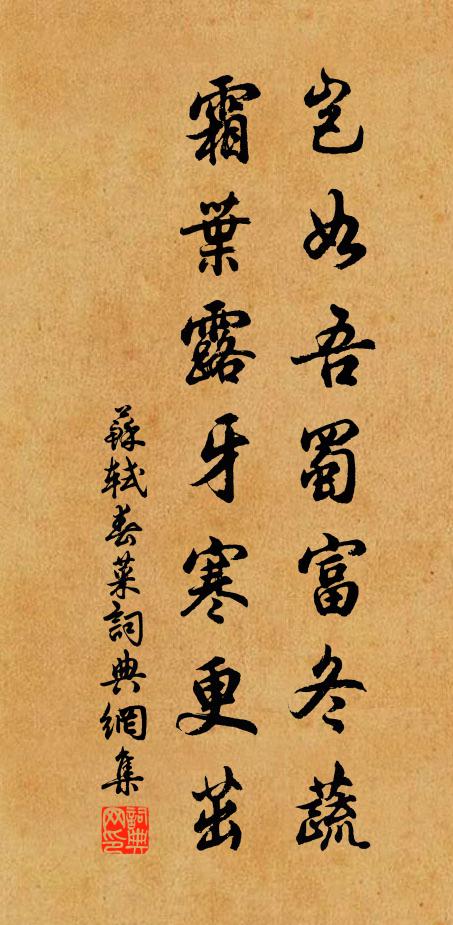 豈如吾蜀富冬蔬
霜葉露牙寒更茁
蘇軾春菜詞典網集
詞典
网印